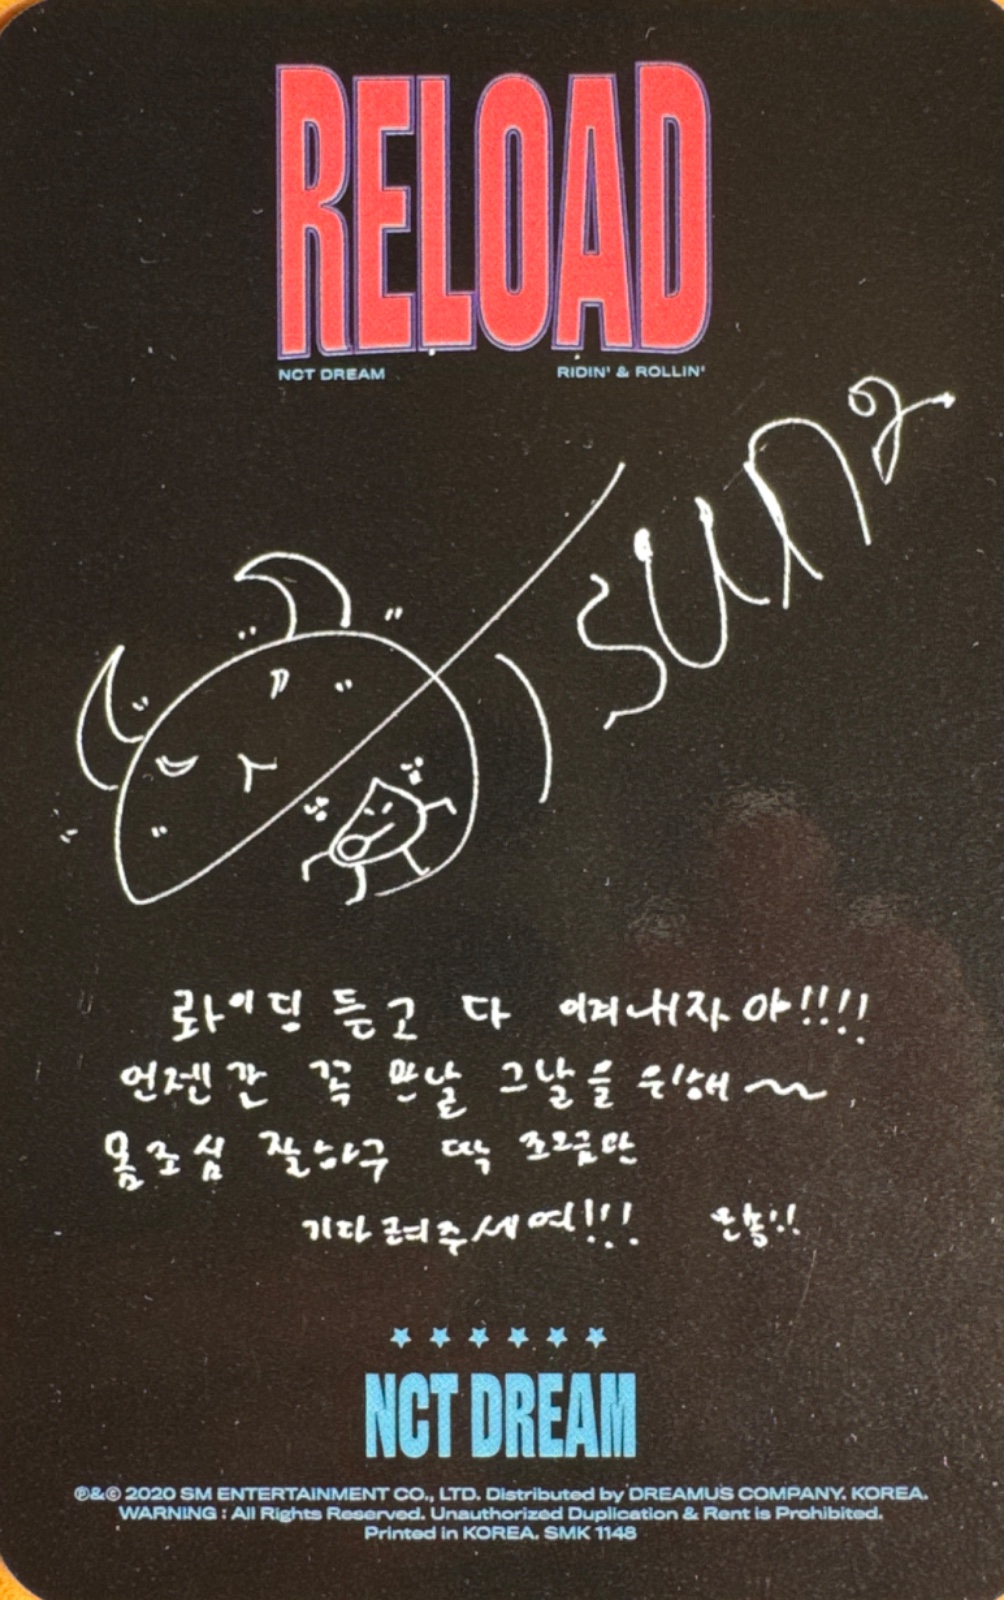 RELOAD
NCT DREAM RIDIN' & ROLLIN'
롸이딩 듣고 다 이겨내자 아!!!!
언젠간 꼭 만날 그날을 위해~
몸조심 잘하구 딱 조금만
기다려주세여!!!
★ ★ ★ ★ ★ ★
NCT DREAM
℗&© 2020 SM ENTERTAINMENT CO., LTD. Distributed by DREAMUS COMPANY. KOREA.
WARNING : All Rights Reserved. Unauthorized Duplication & Rent is Prohibited.
Printed in KOREA. SMK 1148